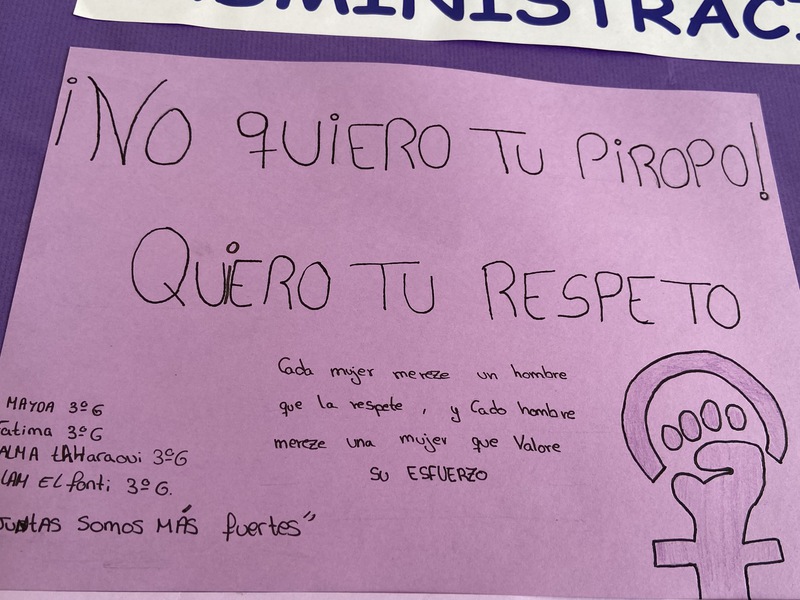 ADMINISTRACI
¡NO QUIERO TU PIROPO!
QUIERO TU RESPETO
Cada mujer mereze un hombre
que la respete, y Cada hombre
mereze una mujer que Valore
SU ESFUERZO
MAYOA 3º G
Fatima 3º G
ALMA tAHaraoui 3º G
LAM El fonti 3º G.
JUNTAS SOMOS MÁS fuertes"